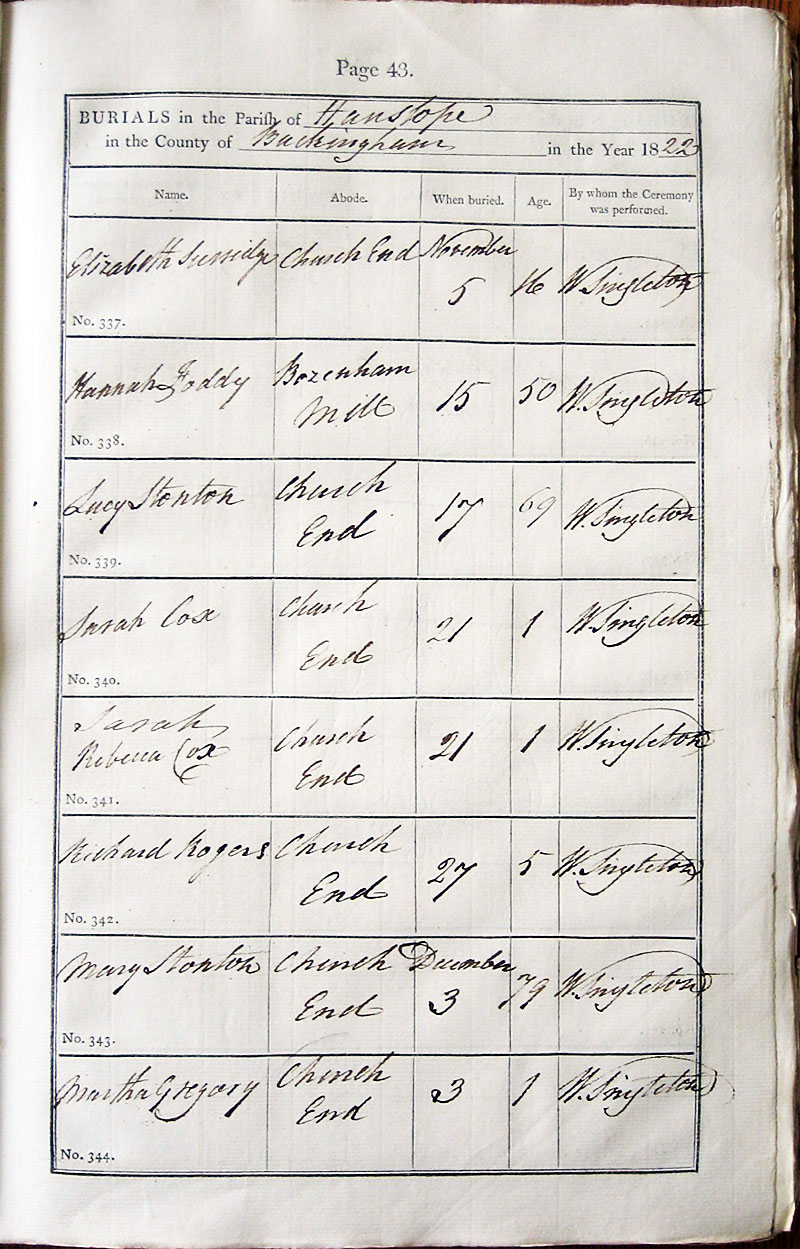 Page 43.
BURIALS in the Parish of Hanslope
in the County of Buckingham in the Year 1822
Name. Abode. When buried. Age. By whom the Ceremony was performed.
Elizabeth Church End November
5 16 W. Singleton
No. 337.
Hannah Foddy Bozenham
Mill 15 50 W. Singleton
No. 338.
Lucy Stonton Church
End 17 69 W. Singleton
No. 339.
Sarah Cox Church
End 21 1 W. Singleton
No. 340.
Sarah
Rebecca Cox Church
End 21 1 W. Singleton
No. 341.
Richard Rogers Church
End 27 5 W. Singleton
No. 342.
Mary Stonton Church December
End 3 79 W. Singleton
No. 343.
Martha Gregory Church
End 3 1 W. Singleton
No. 344.